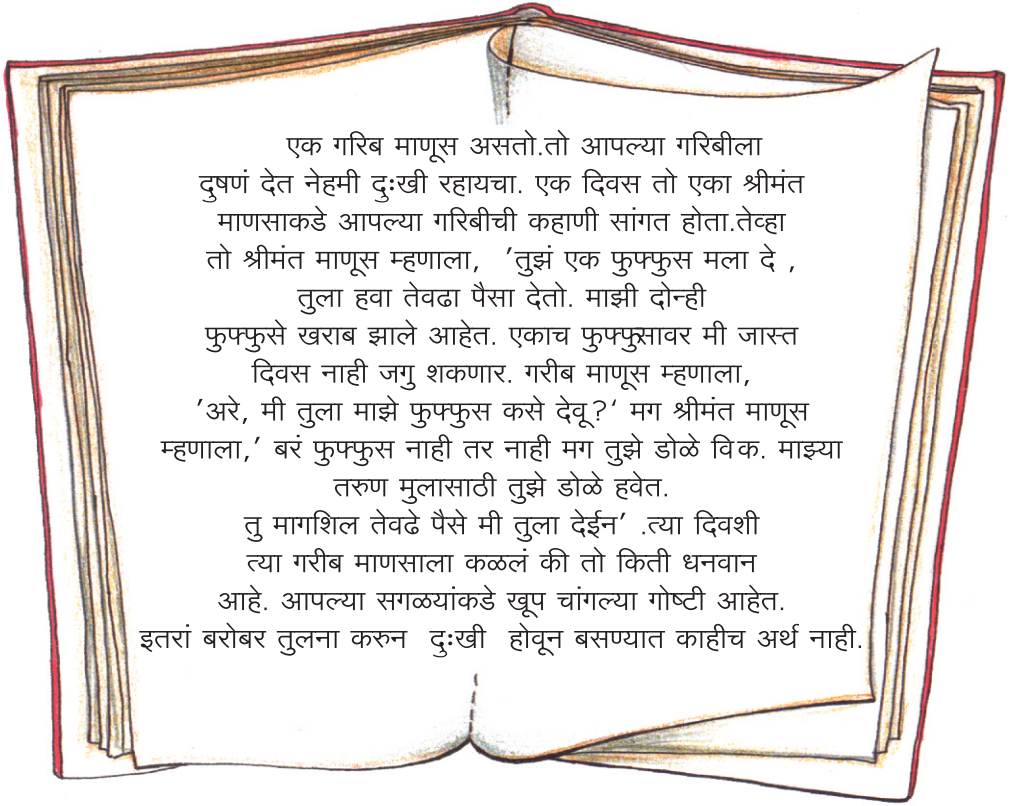 एक गरिब माणूस असतो.तो आपल्या गरिबीला
दुषणं देत नेहमी दुःखी रहायचा. एक दिवस तो एका श्रीमंत
माणसाकडे आपल्या गरिबीची कहाणी सांगत होता.तेव्हा
तो श्रीमंत माणूस म्हणाला, ’तुझं एक फुफ्फुस मला दे ,
तुला हवा तेवढा पैसा देतो. माझी दोन्ही
फुफ्फुसे खराब झाले आहेत. एकाच फुफ्फुसावर मी जास्त
दिवस नाही जगु शकणार. गरीब माणूस म्हणाला,
’अरे, मी तुला माझे फुफ्फुस कसे देवू?‘ मग श्रीमंत माणूस
म्हणाला,’ बरं फुफ्फुस नाही तर नाही मग तुझे डोळे विक. माझ्या
तरुण मुलासाठी तुझे डोळे हवेत.
तु मागशिल तेवढे पैसे मी तुला देईन’ .त्या दिवशी
त्या गरीब माणसाला कळलं की तो किती धनवान
आहे. आपल्या सगळयांकडे खूप चांगल्या गोष्टी आहेत.
इतरां बरोबर तुलना करुन दुःखी होवून बसण्यात काहीच अर्थ नाही.